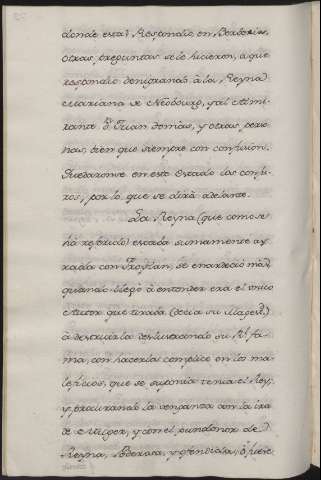 donde está? Respondio en Berberia,
otras preguntas se le hicieron, a que
respondio denigrando â la Reyna
Mariana de Neobourg, y al Almi-
rante Dn Juan Tomas, y otras perso-
nas, bien que siempre con confusion.
Quedaronse en este Estado los conju-
ros, por lo que se dirà adelante.
La Reyna (que como se
hà referido) estaba sumamente ay-
rada con Froylan, se enardecio màs
quando llegò à entender era el unico
Autor que tiraba (decia su Magestd)
à destruirla deslustrando su Rl fa-
ma, con hacerla complice en los ma-
leficios, que se suponia tenia el Rey,
y procurando la venganza con la ira
de Muger, y con el pundonor de
Reyna, Poderosa, y ofendida,